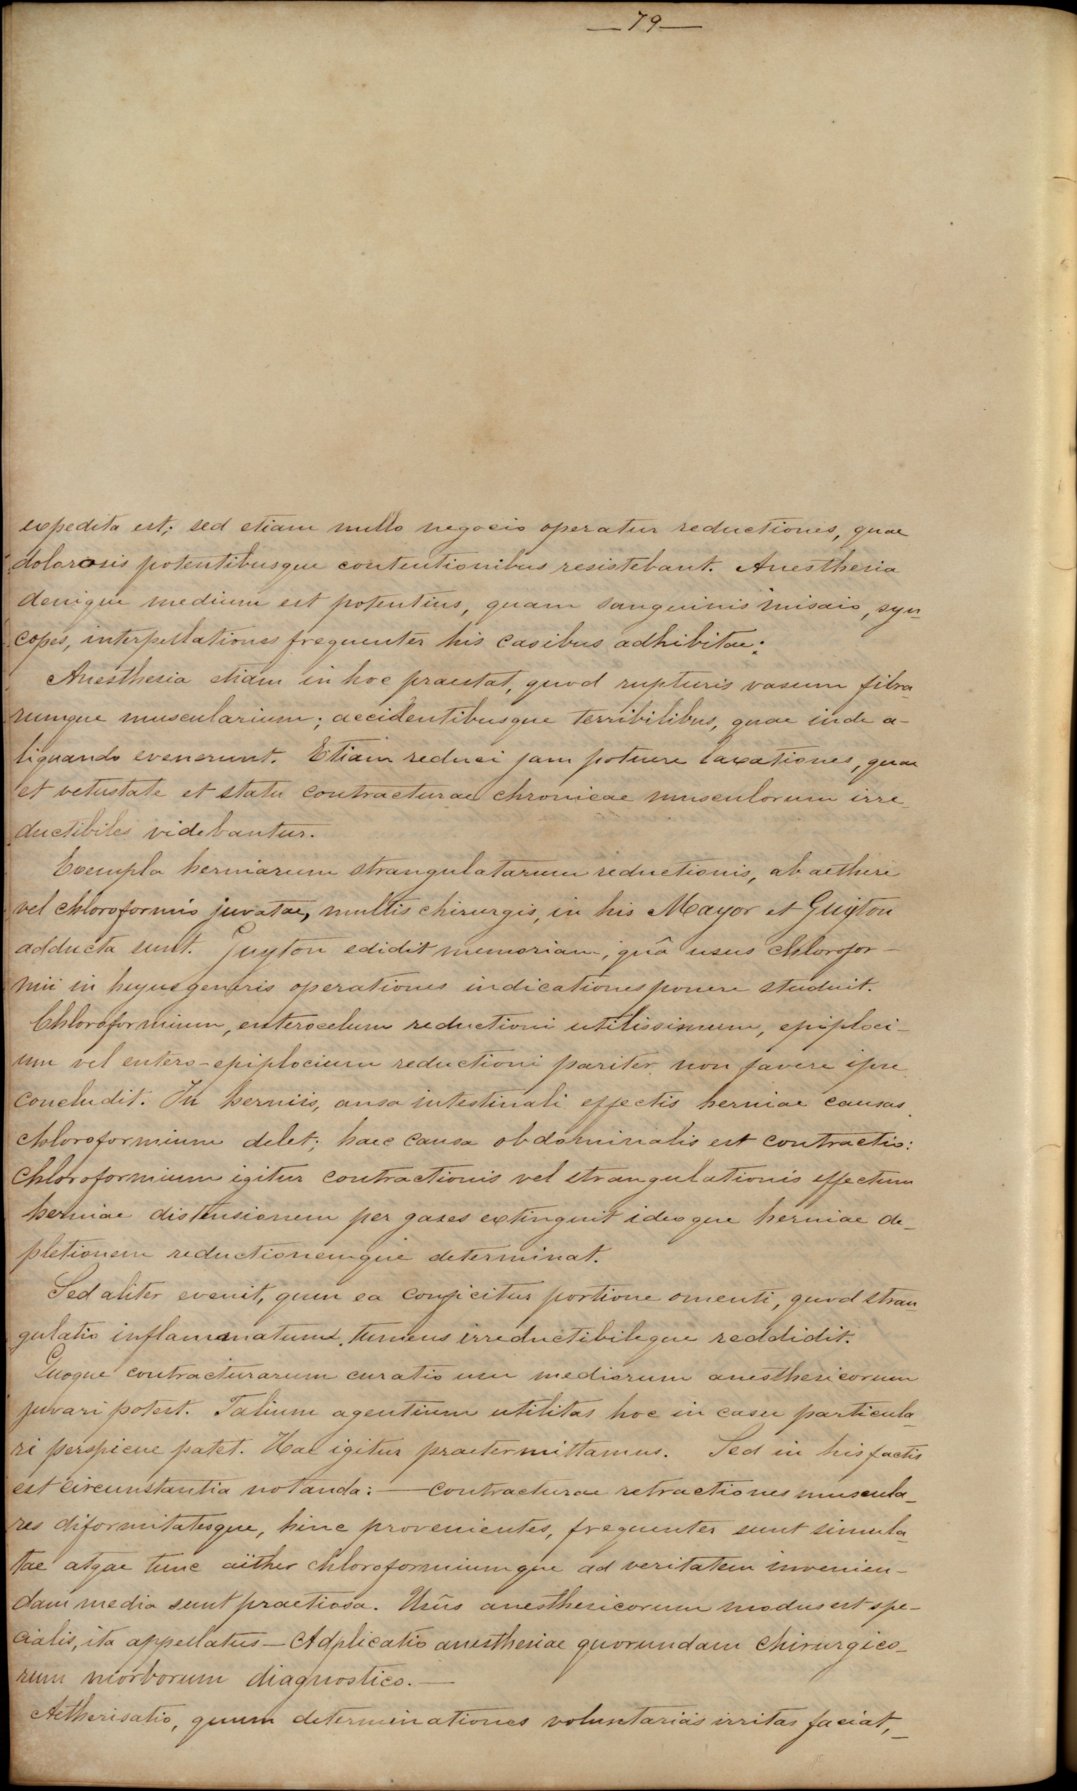 —79—
expedita est; sed etiam nullo negocio operatur reductiones, quae
dolorosis potentibusque contentionibus resistebant. Anesthesia
denique medium est potentius, quam sanguinis misaio, syn-
copes, interpellationes frequenter his casibus adhibitae:
Anesthesia etiam in hoc praestat, quod rupturis vasum fibra-
rumque muscularium; accidentibusque terribilibus, quae inde a-
liquando evenerunt. Etiam reduci jam potuere luxationes, quae
et vetustate et statu contracturae chronicae musculorum irre-
ductibiles videbantur.
Exempla herniarum strangulatarum reductionis, ab aethere
vel chloroformio juvatae, multis chirurgis, in his Mayor et Guyton
adducta sunt. Guyton edidit memoriam, quâ usus chlorofor-
mii in hujus generis operationes indicationes ponere studuit.
Chloroformium, enterocelum reductioni utilissimum, epiploci-
um vel entero-epiplocium reductioni pariter non favere ipse
concludit. In herniis, ansa intestinali effectis herniae causas
chloroformium delet; haec causa abdominalis est contractio:
chloroformium igitur contractionis vel strangulationis effectum
herniae distensionem per gazes extinguit ideoque herniae de-
pletionem reductionemque determinat.
Sed aliter evenit, quum ea conficitur portione omenti, quod stran
gulatio inflammatum, tumens irreductibileque reddidit.
Quoque contracturarum curatio usu mediorum anesthesicorum
juvari potest. Talium agentium utilitas hoc in casu particula-
ri perspicue patet. Hac igitur praetermittamus. Sed in his factis
est circumstantia notanda: — contracturae retractiones muscula-
res diformitatesque, hinc provenientes, frequenter sunt simula-
tae atque tunc aither chloroformiumque ad veritatem invenien-
dam media sunt praetiosa. Usûs anesthesicorum modus est spe-
cialis, ita appellatus — Adplicatio anesthesiae quorundam chirurgico-
rum morborum diagnostico. —
Aetherisatio, quum determinationes voluntarias irritas faciat, —